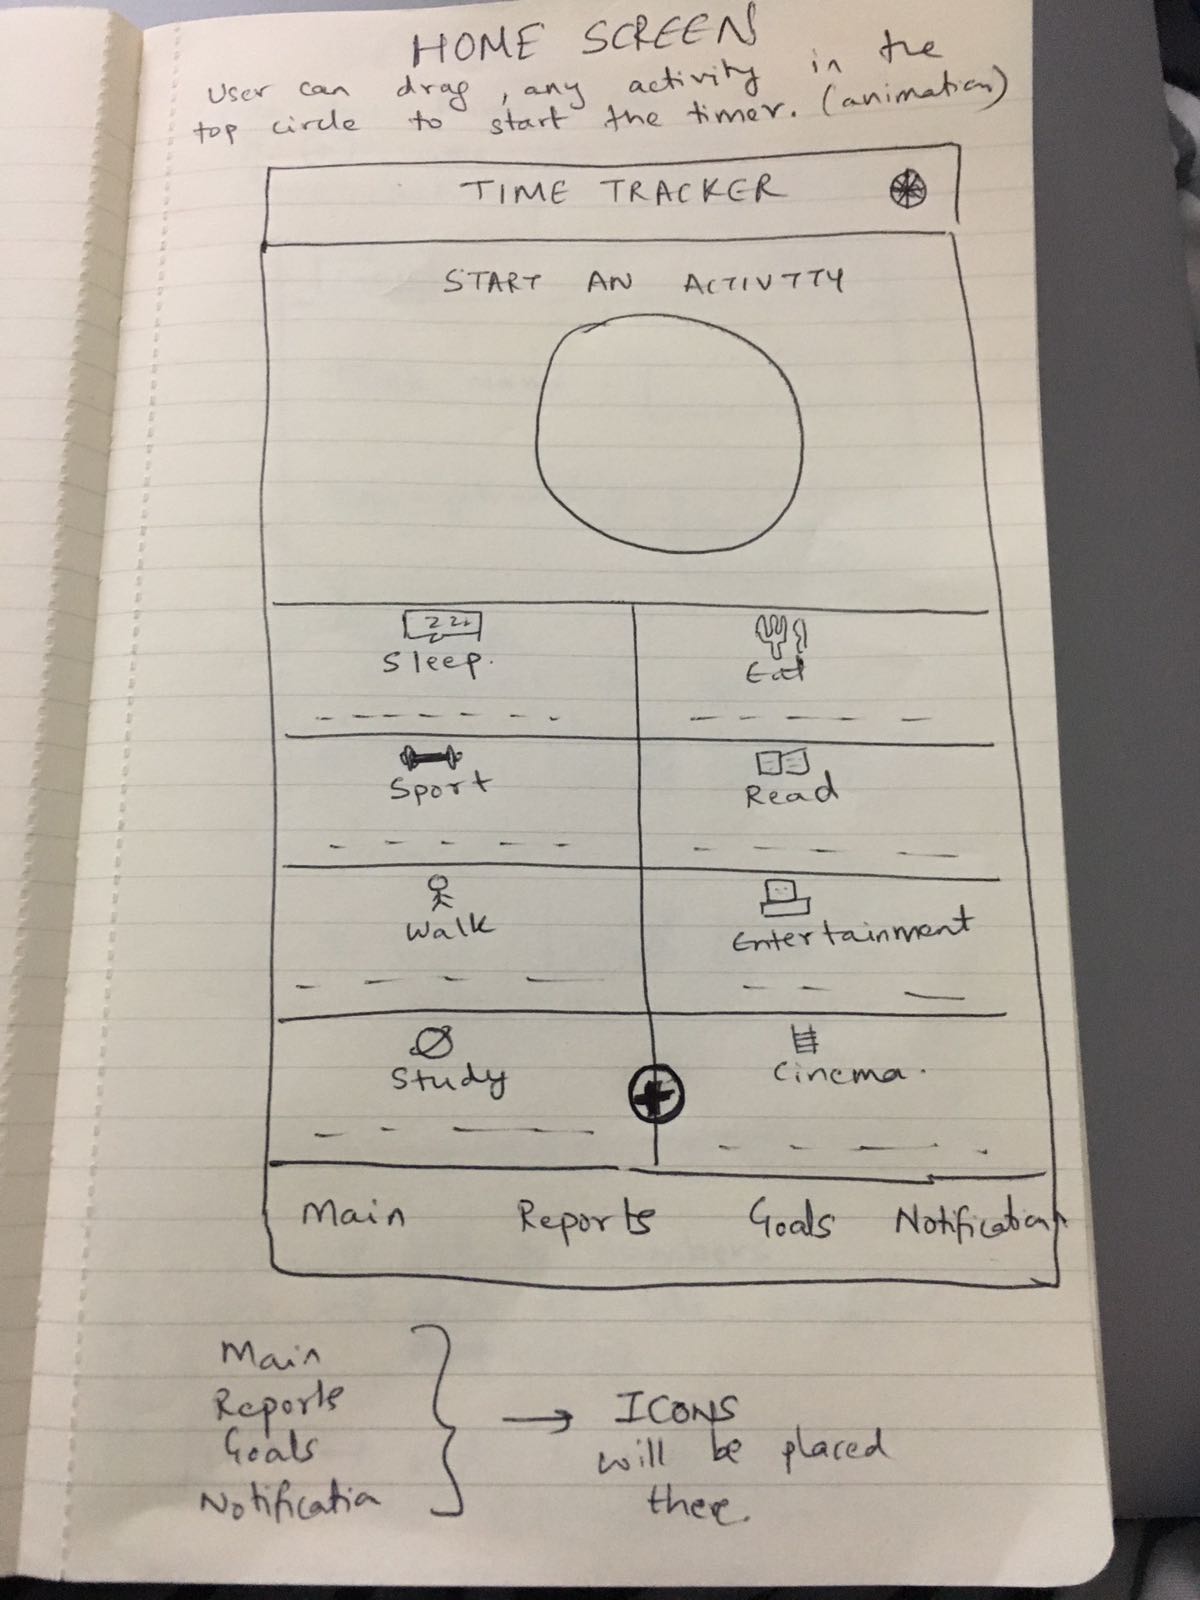 HOME SCREEN
User can drag, any activity in the
top circle to start the timer. (animation)
TIME TRACKER
START AN ACTIVTTY
zzz
Sleep.
Eat
Sport
Read
Walk
Entertainment
Study
Cinema.
Main Reports Goals Notification
Main
Reports
Goals
Notificatia
ICONS
will be placed
there.